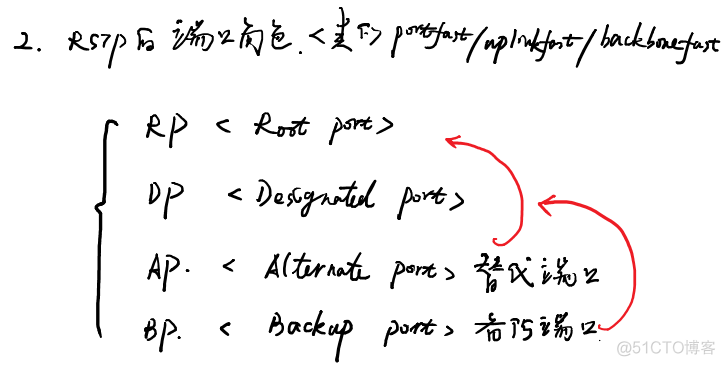 2. RSTP的端口角色.<基于> portfast/uplinkfast/backbonefast
RP < Root port>
DP < Designated port>
AP. < Alternate port> 替代端口
BP. < Backup port> 备份端口
@51CTO博客